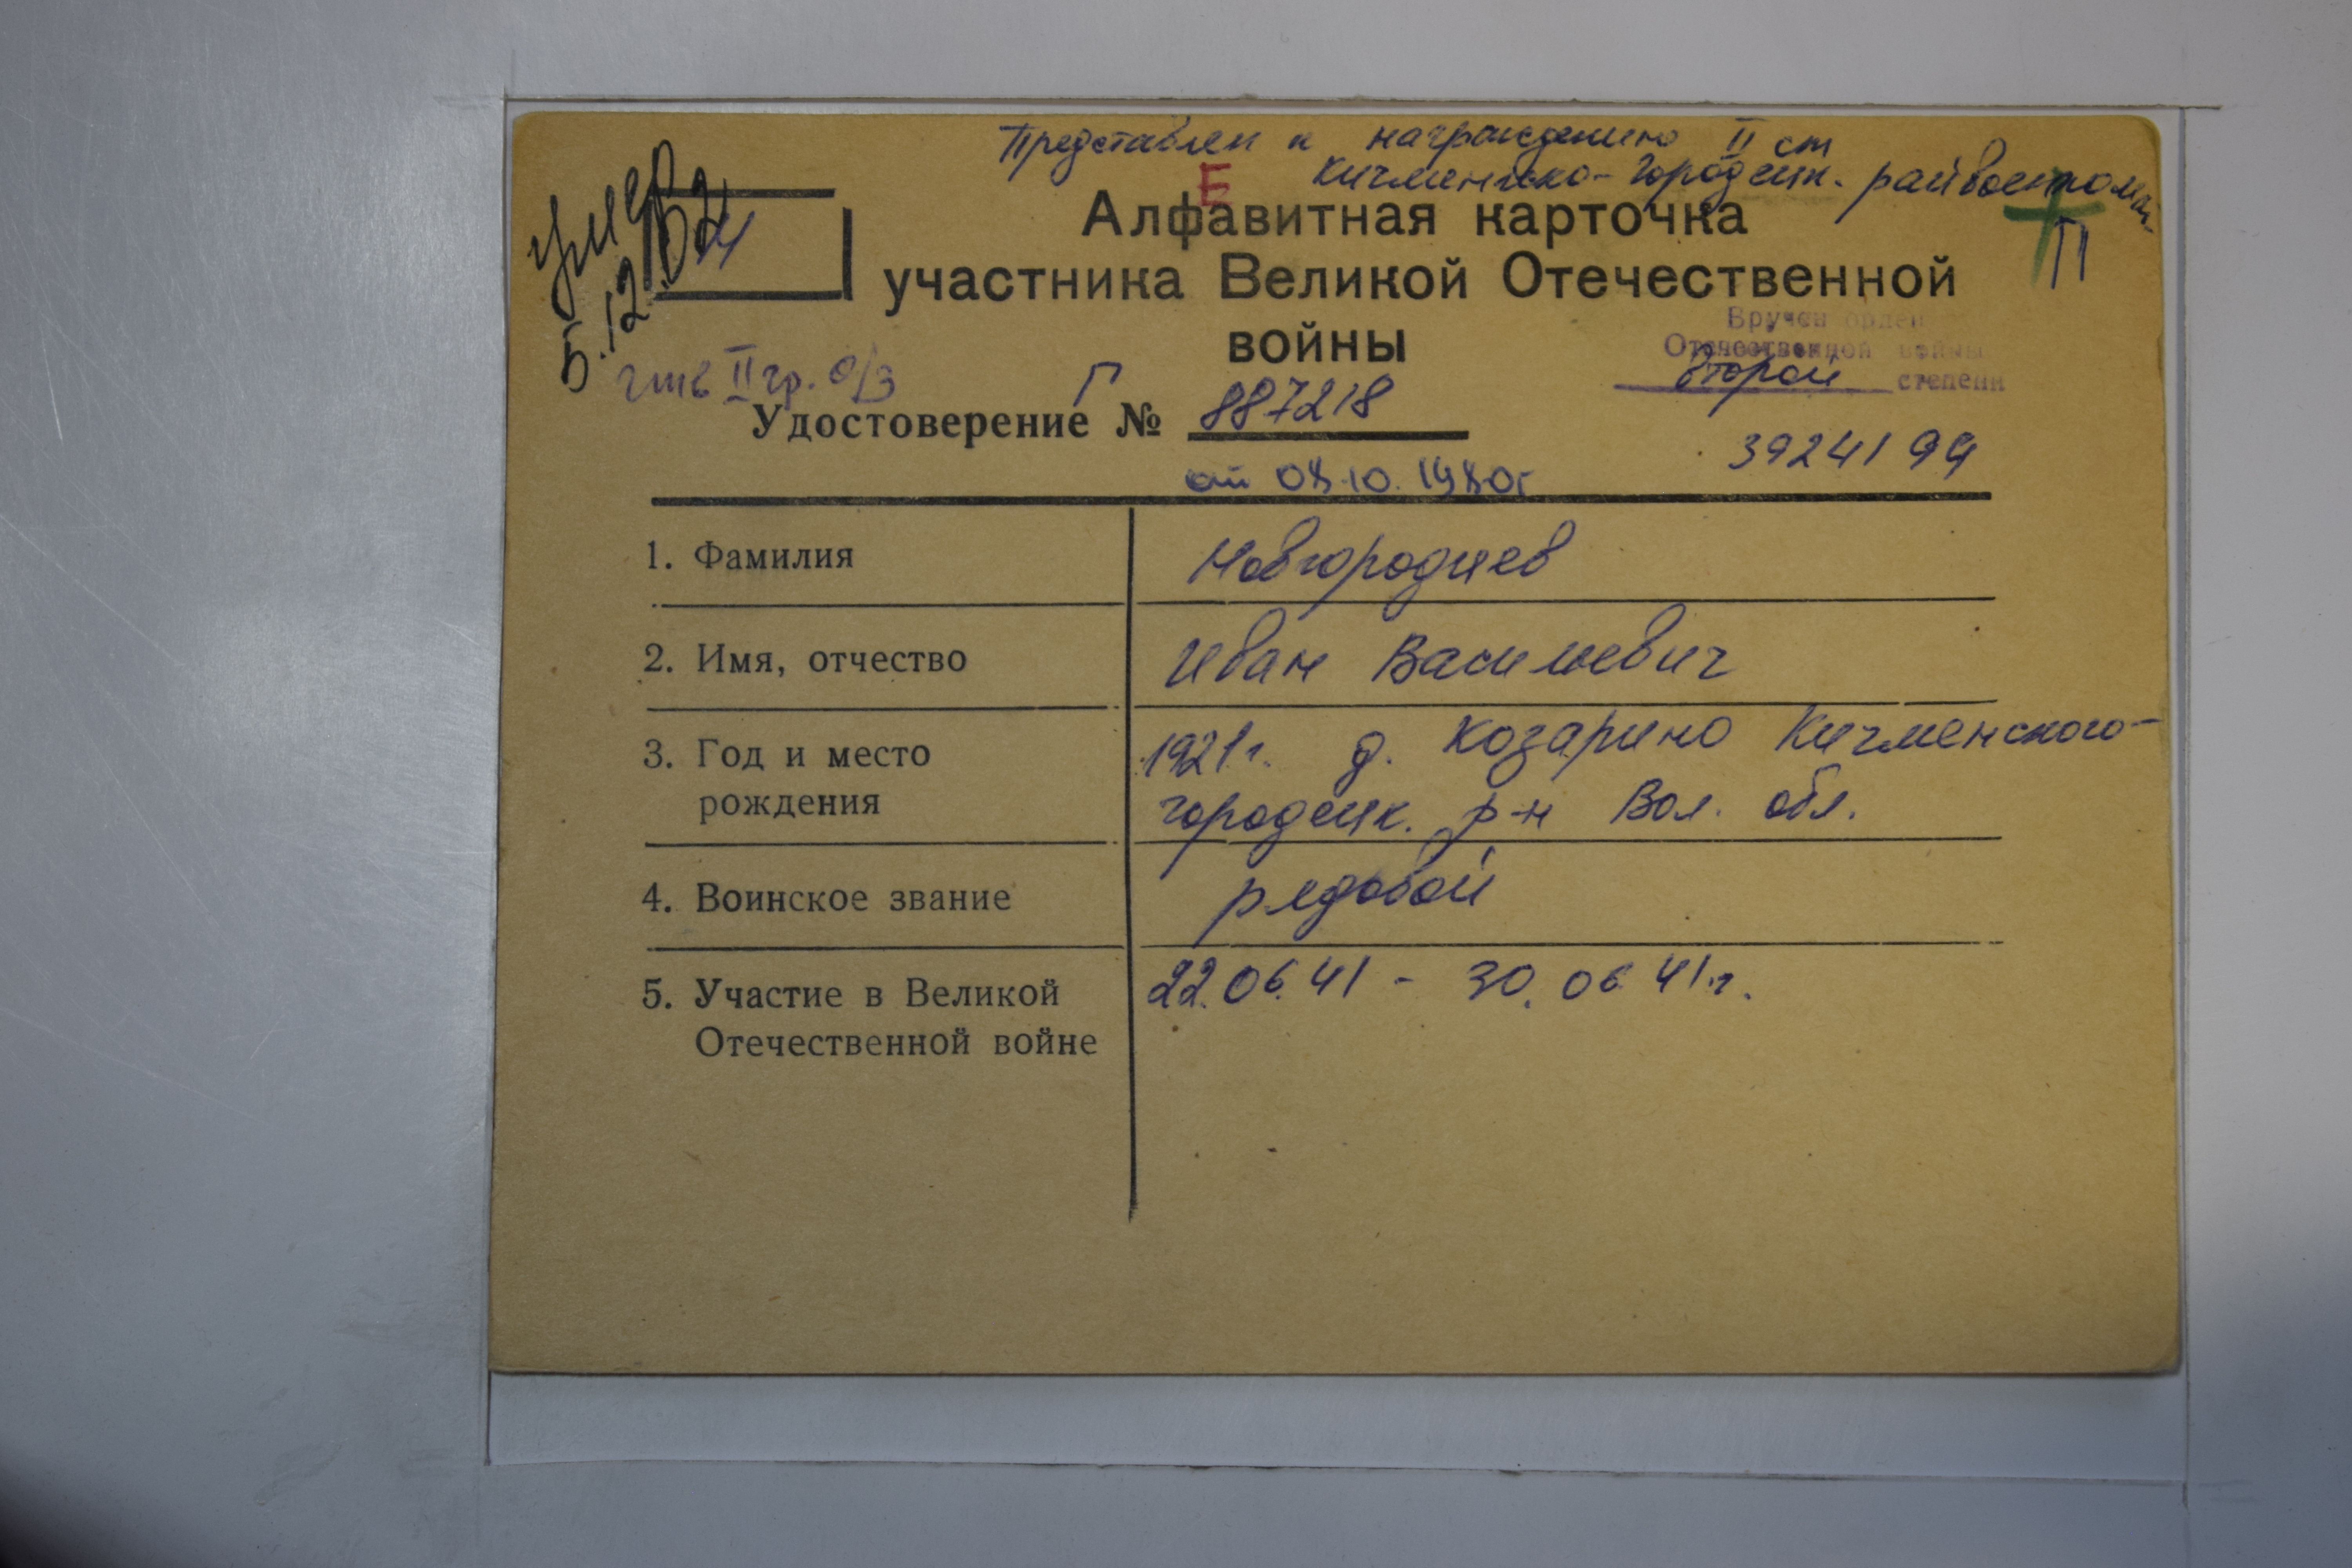 Представлен к награждению II ст
Кичменгско-Городецк. райвоенкомат
Е
умер
5.12.
П
Алфавитная карточка
участника Великой Отечественной
войны
Вручен орден
Отечественной войны
второй степени
инв II гр. О/З
Г
Удостоверение № 887218
от 08.10.1980г
3924199
1. Фамилия Новгородцев
2. Имя, отчество Иван Васильевич
3. Год и место 1921г. д. Козарино Кичменского-
рождения городецк. р-н Вол. обл.
4. Воинское звание рядовой
5. Участие в Великой 22.06.41 - 30.06.41г.
Отечественной войне